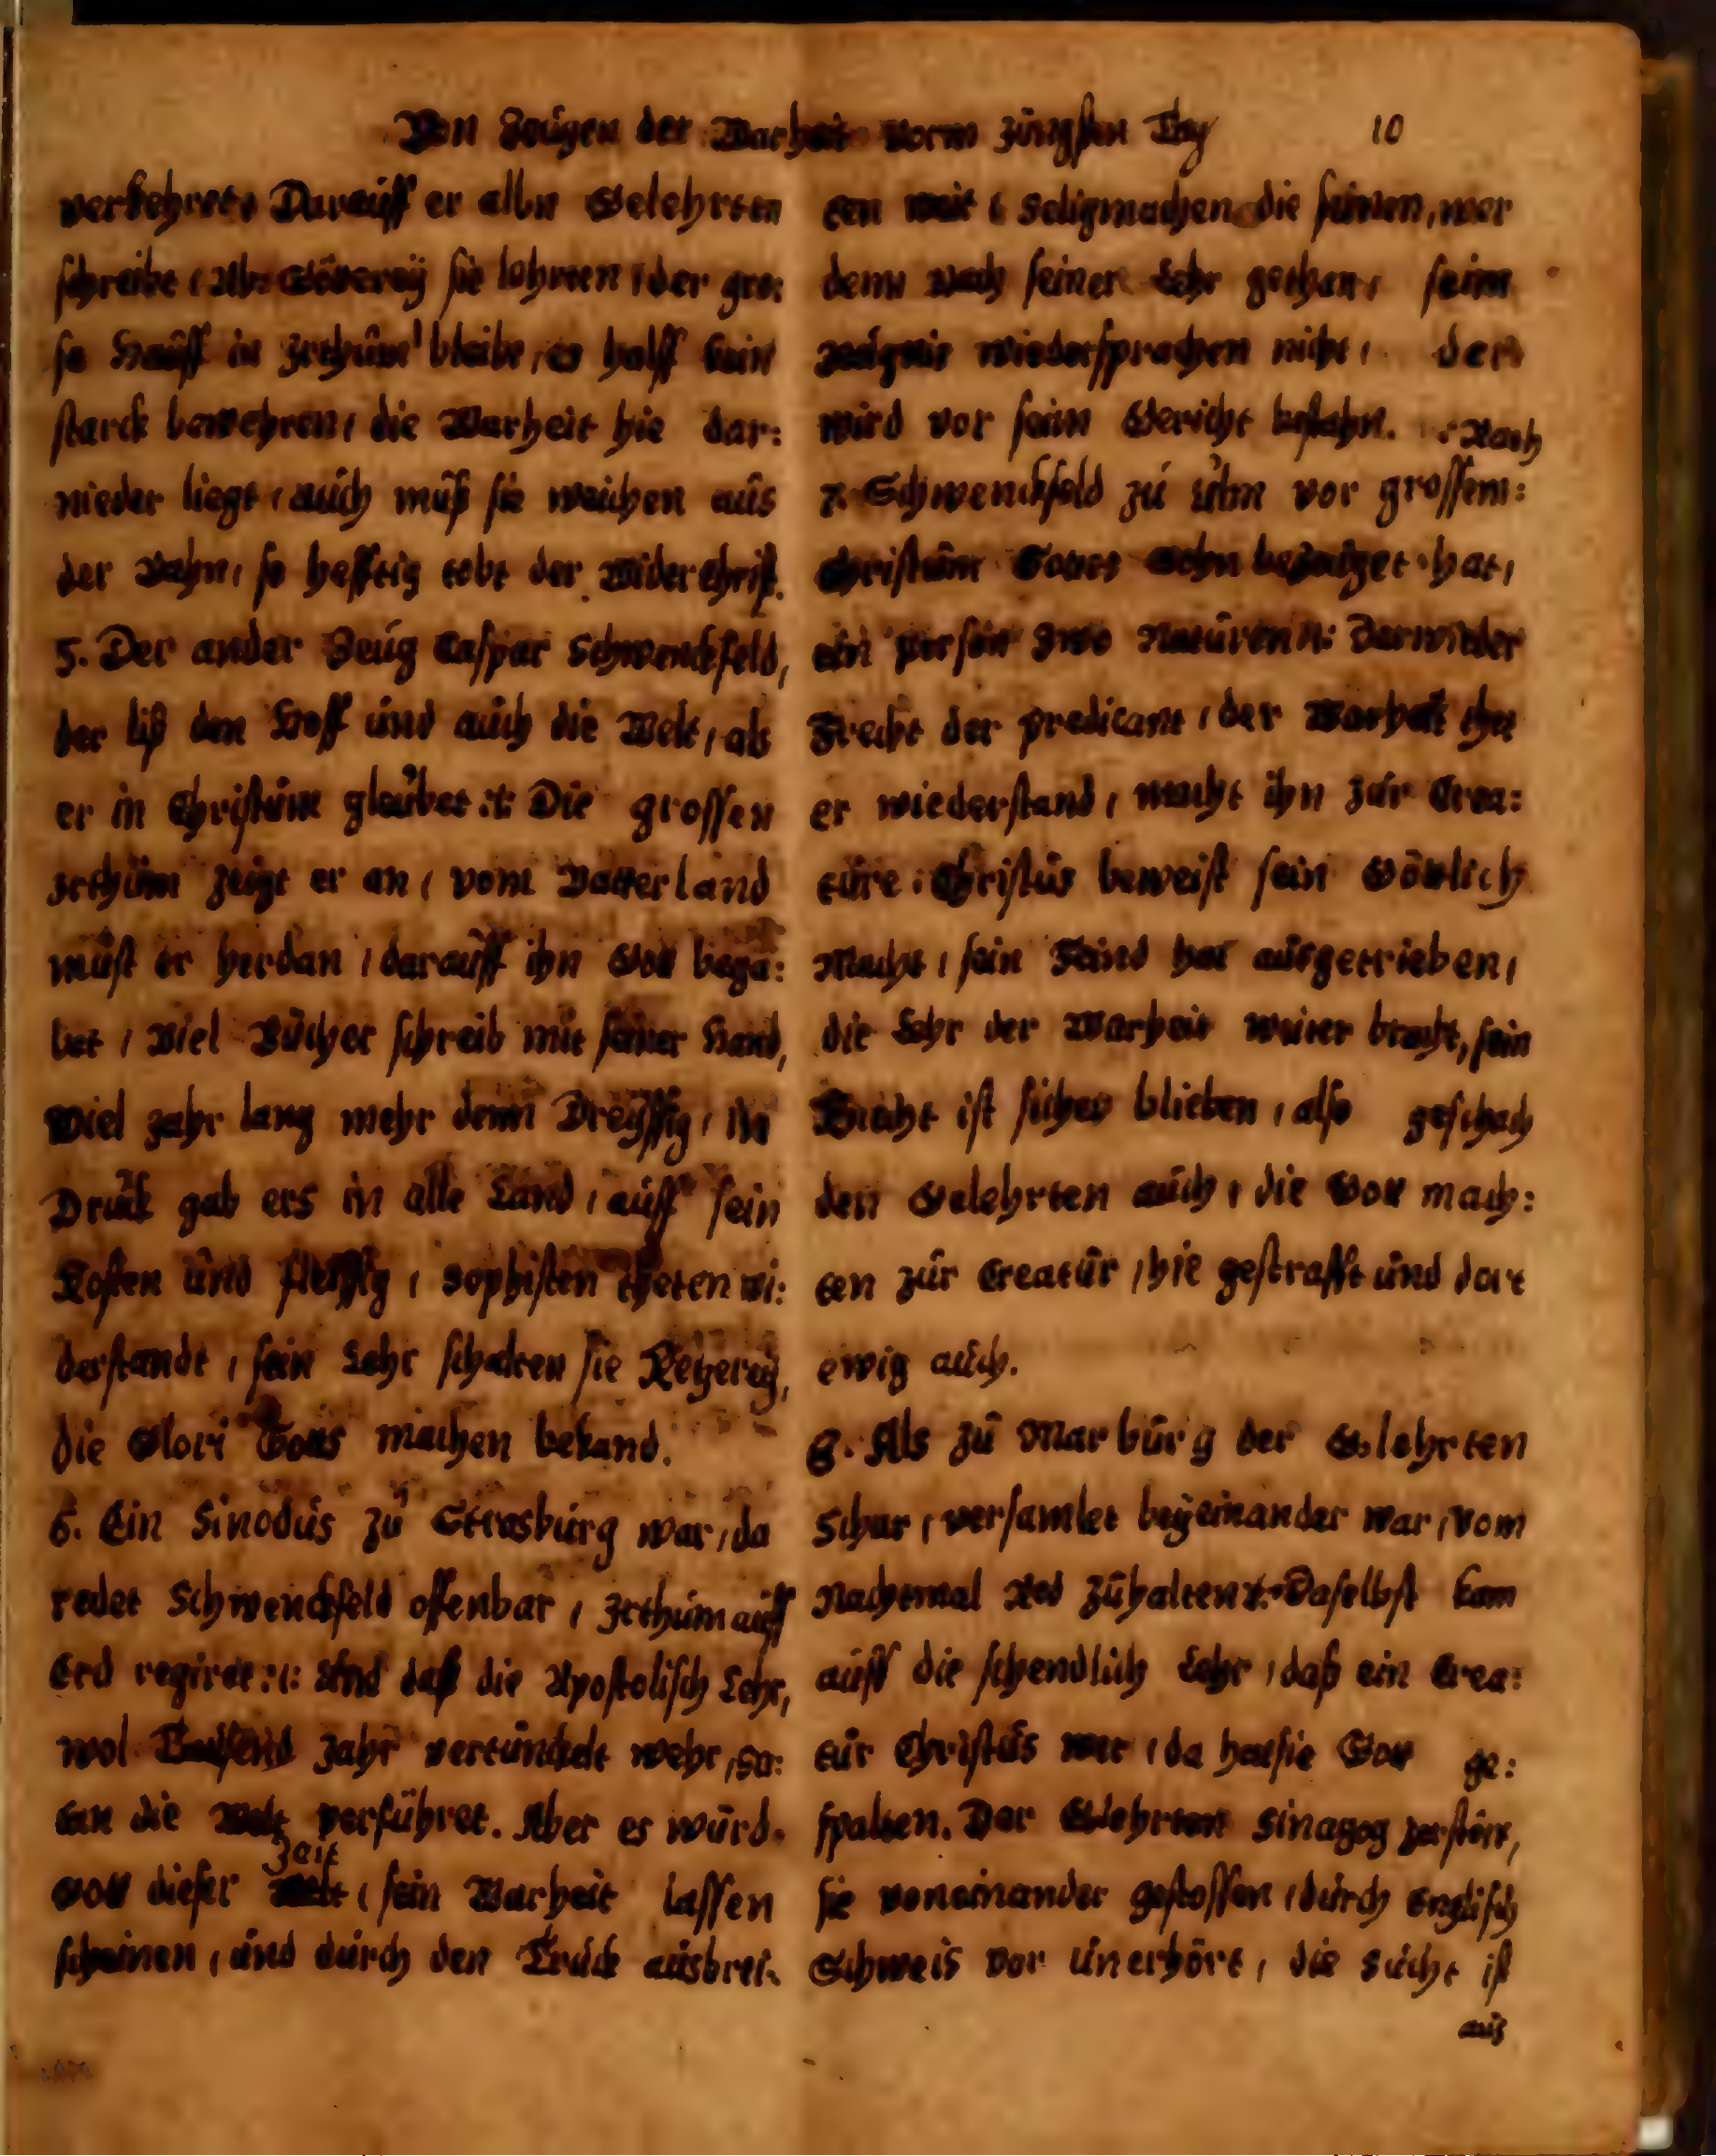 Von Zeugen der Warheit vorm Jüngsten Tag 10
verkehrete Darauff er allen Gelehrten
schreibt, Abgötterey sie lehrten, der gro:
se Hauff in Irthum bleibt, es halff kein
starck bewehren, die Warheit hie dar:
nieder liegt, auch muß sie weichen aus
der Bahn, so hefftig tobt der Widerchrist.
5. Der ander Zeug Caspar Schwenckfeld,
der liß den Hoff und auch die Welt, als
er in Christum glaubet :: Die grossen
Irthum zeigt er an, vom Vatterland
must er herdan, darauff ihn Gott bega:
bet, Viel Bücher schreib mit seiner Hand,
Viel Jahr lang mehr denn Dreyssig, in
Druck gab ers in alle Land, auff sein
Kosten und fleissig, Sophisten theten wi:
derstandt, sein Lehr schalten sie Ketzerey,
die Glori Gotts machen bekand.
6. Ein Sinodus zu Strasburg war, da
redet Schwenckfeld offenbar, Irthum auff
Erd regiret :: Und daß die Apostolisch Lehr,
wol Tausend Jahr vertunckelt wehr, Sa:
tan die Welt verführet. Aber es würd
Zeit
Gott dieser Welt, sein Warheit lassen
scheinen, und durch den Truck ausbrei:
ten weit, Seligmachen die seinen, wer
denn nach seiner Lehr gethan, seim
Zeugnis wiedersprachen nicht, der
wird vor seim Gericht bestahn. Nach
7. Schwenckfeld zu Ulm vor grossem:
Christum Gottes Sohn bezeuget hat,
ein person zwo Naturen :: Darwieder
Frecht der predicant, der Warheit thet
er wiederstand, macht ihn zur Crea:
ture, Christus beweist sein Göttlich
Macht, sein Feind hat ausgetrieben,
die Lehr der Warheit weiter bracht, sein
Knecht ist sicher blieben, also geschach
den Gelehrten auch, die Gott mach:
ten zur Creatur, hie gestrafft und dort
ewig auch.
8. Als zu Marburg der Gelehrten
Schar, versamlet beyeinander war, vom
Nachtmal Red zuhalten :: Daselbst kam
auff die schendlich Lehr, daß ein Crea:
tur Christus wer, da hat sie Gott ge:
spalten. Der Gelehrten Sinagog zerstört,
sie voneinander gestossen, durch Englisch
Schweis vor unerhört, die Sucht ist
aus